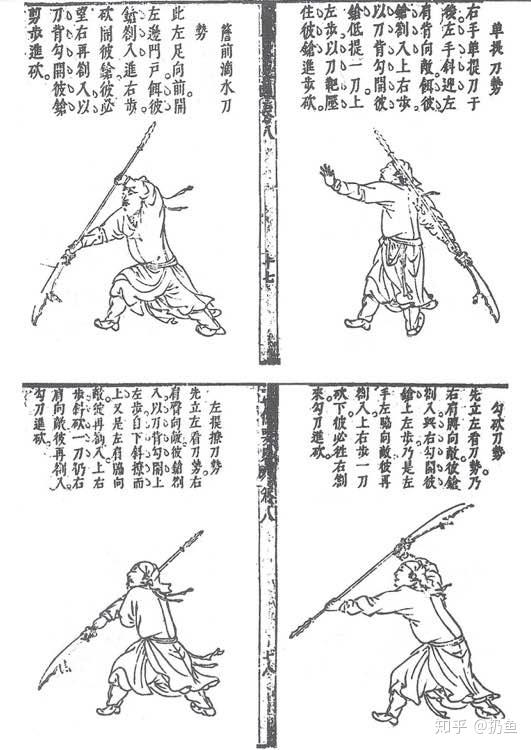 单提刀勢
右手单提刀于
後左手斜迎左
肩背向敵餌彼
鎗劄入上右步
以刀背勾開彼
鎗低提一刀上
左步以刀靶壓
住彼鎗進步砍
卷八
十七
簷前滴水刀
勢
此左足向前開
左邊門戶餌彼
鎗劄入進右步
砍開彼鎗彼必
望右再劄入以
刀背勾開彼鎗
剪步進砍
勾砍刀勢
先立左看刀勢乃
右肩向敵彼鎗
劄入與右勾開彼
鎗上左步乃是左
手左脇向敵彼再
劄入上右步一刀
砍下彼必徃右劄
來勾刀進砍
卷八
十八
左提撩刀勢
先立左看刀勢右
肩臂向敵彼鎗劄
入以刀背勾開上
左步自下斜撩而
上又是左肩脇向
敵彼再劄入上右
步斜砍一刀仍右
肩向敵彼再劄入
勾刀進砍
知乎 @扔鱼